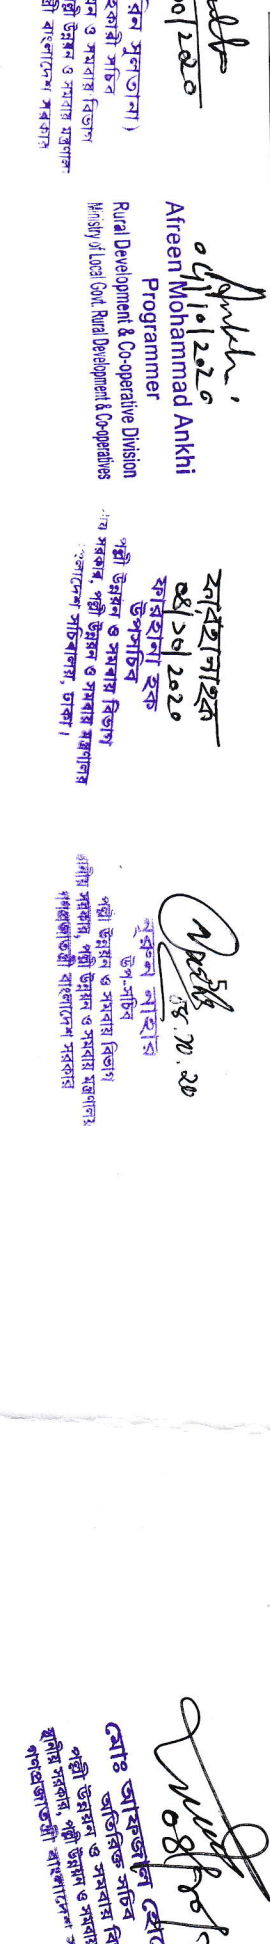 সুলতানা)
সচিব
ও সমবায় বিভাগ
উন্নয়ন ও সমবায় মন্ত্রণাল
বাংলাদেশ সরকার
Ankhi
04/10/2020
Afreen Mohammad Ankhi
Programmer
Rural Development & Co-operative Division
Ministry of Local Govt. Rural Development & Co-operatives
ফারহানা হক
০৪/১০/২০২০
ফারহানা হক
উপসচিব
পল্লী উন্নয়ন ও সমবায় বিভাগ
সরকার, পল্লী উন্নয়ন ও সমবায় মন্ত্রণালয়
বাংলাদেশ সচিবালয়, ঢাকা।
০৪.১০.২০
নুরুন নাহার
উপ-সচিব
পল্লী উন্নয়ন ও সমবায় বিভাগ
স্থানীয় সরকার, পল্লী উন্নয়ন ও সমবায় মন্ত্রণালয়
গণপ্রজাতন্ত্রী বাংলাদেশ সরকার
মোঃ আফজাল
অতিরিক্ত সচিব
পল্লী উন্নয়ন ও সমবায়
স্থানীয় সরকার, পল্লী উন্নয়ন ও সমবায়
গণপ্রজাতন্ত্রী বাংলাদেশ